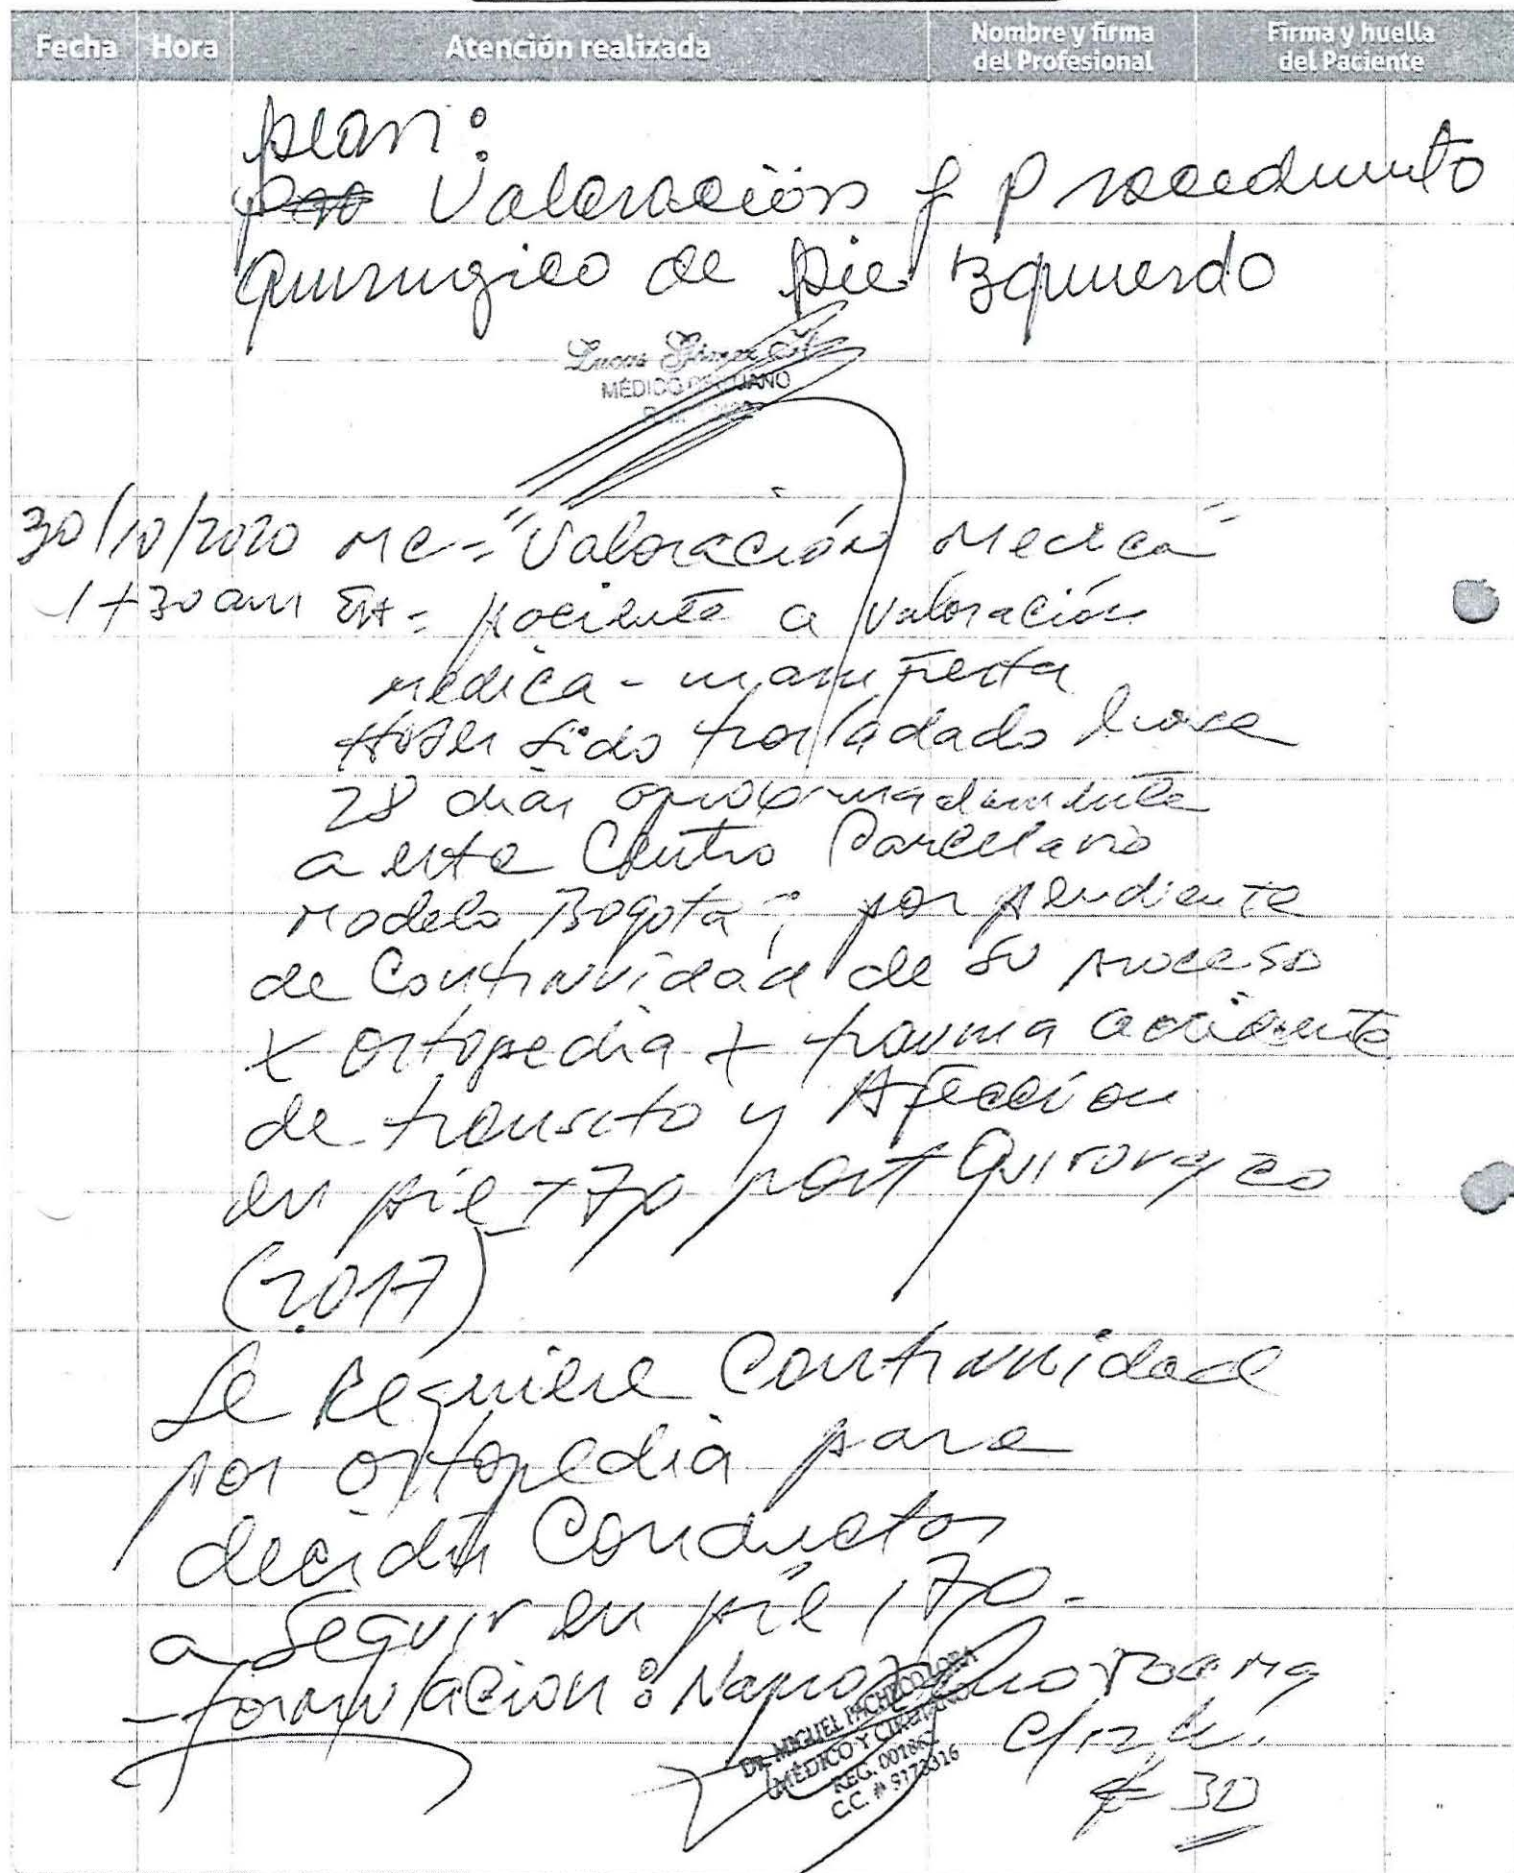 Fecha Hora Atención realizada Nombre y firma del Profesional Firma y huella del Paciente
plan:
Valoración y Procedimiento
Quirurgico de pie Izquierdo
MÉDICO CIRUJANO
30/10/2020 MC = "Valoración Medica"
1+30 am EA = paciente a valoración
medica - manifiesta
Haber sido trasladado hace
28 dias aproximadamente
a este Centro Carcelario
Modelo Bogota; por pendiente
de Continuidad de su proceso
x ortopedia + trauma accidente
de transito y Afeccion
en pie izq post Quirurgico
(2017)
Se Requiere Continuidad
por ortopedia para
decidir Conductas
a Seguir en pie izq.
- formulacion:
DR. MIGUEL PACHECO LORA
MÉDICO Y CIRUJANO
C/12 h.
# 30